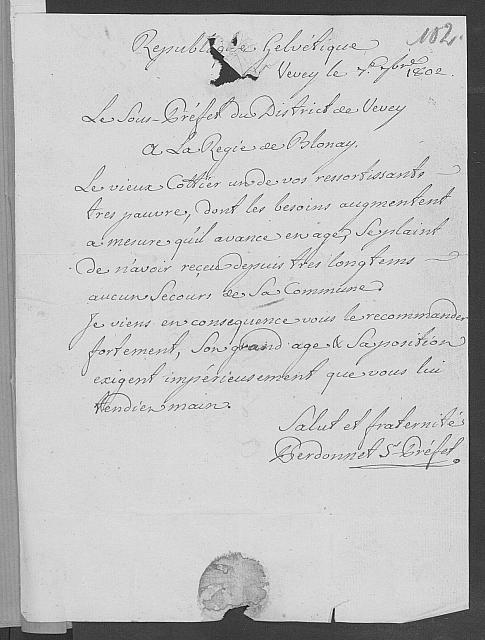 102.
Republique Helvétique
Vevey le 7.e 7bre 1802.
Le Sous-Préfet du District de Vevey
A La Regie de Blonay.
Le vieux Cottier un de vos ressortissants
tres pauvre, dont les besoins augmentent
a mesure qu'il avance en age, Se plaint
de n'avoir reçeu depuis tres longtems
aucun Secours de Sa Commune.
Je viens en consequence vous le recommander
fortement, Son grand age & Sa position
exigent impérieusement que vous lui
tendiez main.
Salut et fraternité
Perdonnet Ss-Préfet.